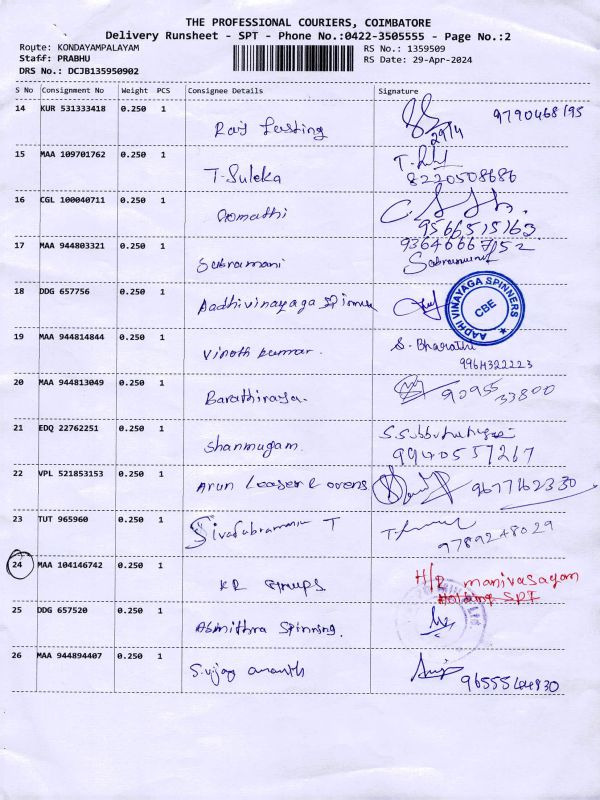 THE PROFESSIONAL COURIERS, COIMBATORE
Delivery Runsheet - SPT - Phone No.:0422-3505555 - Page No.:2
Route: KONDAYAMPALAYAM
RS No.: 1359509
Staff: PRABHU
RS Date: 29-Apr-2024
DRS No.: DCJB135950902
S No Consignment No Weight PCS Consignee Details Signature
14 KUR 531333418 0.250 1
29/4
15 MAA 109701762 0.250 1
T. Suleka
8220508686
16 CGL 100040711 0.250 1
Gomathi
9566515163
17 MAA 944803321 0.250 1
Subramani
18 DDG 657756 0.250 1
Aadhivinayaga
AADHI VINAYAGA SPINNERS
CBE
19 MAA 944814844 0.250 1
Vinoth kumar. S. Bharathi
9964322223
20 MAA 944813049 0.250 1
Barathiraja. 90955 33800
21 EDQ 22762251 0.250 1
Shanmugam.
9940557267
22 VPL 521853153 0.250 1
Arun 9677162330
23 TUT 965960 0.250 1
Sivasubramani T
9789248029
24 MAA 104146742 0.250 1
H/R manivasagam
KR Groups Holding SPT
25 DDG 657520 0.250 1
Asmithra Spinning.
26 MAA 944894407 0.250 1
S.vijay ananth